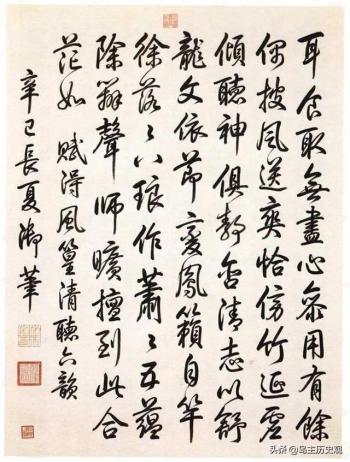 耳食取無盡心齋用有餘
偶披風送爽恰傍竹延虛
傾聽神俱靜含清志以舒
龍文依節變鳳籟自竿
徐落々八琅作蕭々五蘊
除辨聲師曠擅到此合
茫如 賦得風篁清聽六韻
辛巳長夏御筆
头条 @岛主历史观